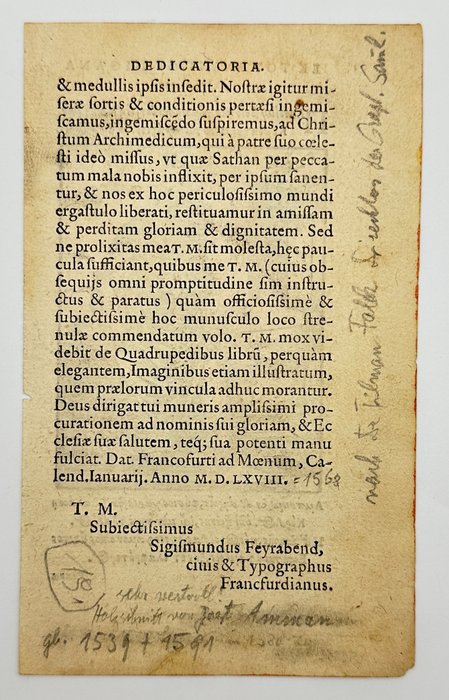 DEDICATORIA.
& medullis ipsis insedit. Nostræ igitur mi-
seræ sortis & conditionis pertæsi ingemi-
scamus, ingemiscẽdo suspiremus, ad Chri-
stum Archimedicum, qui à patre suo cœle-
sti ideò missus, vt quæ Sathan per pecca-
tum mala nobis inflixit, per ipsum sanen-
tur, & nos ex hoc periculosissimo mundi
ergastulo liberati, restituamur in amissam
& perditam gloriam & dignitatem. Sed
ne prolixitas mea T. M. sit molesta, hęc pau-
cula sufficiant, quibus me T. M. (cuius ob-
sequijs omni promptitudine sim instru-
ctus & paratus) quàm officiosissimè &
subiectissimè hoc munusculo loco stre-
nulæ commendatum volo. T. M. mox vi-
debit de Quadrupedibus librũ, perquàm
elegantem, Imaginibus etiam illustratum,
quem prælorum vincula adhuc morantur.
Deus dirigat tui muneris amplissimi pro-
curationem ad nominis sui gloriam, & Ec
clesiæ suæ salutem, teq; sua potenti manu
fulciat. Dat. Francofurti ad Mœnum, Ca-
lend. Ianuarij. Anno M. D. LXVIII. = 1568
T. M.
Subiectissimus
Sigismundus Feyrabend,
ciuis & Typographus
Francfurdianus.
sehr wertvoll!
Holzschnitt von Jost Amman
gb. 1539 + 1591
nach Dr Tilman Falk Direktor der Graph. Saml.